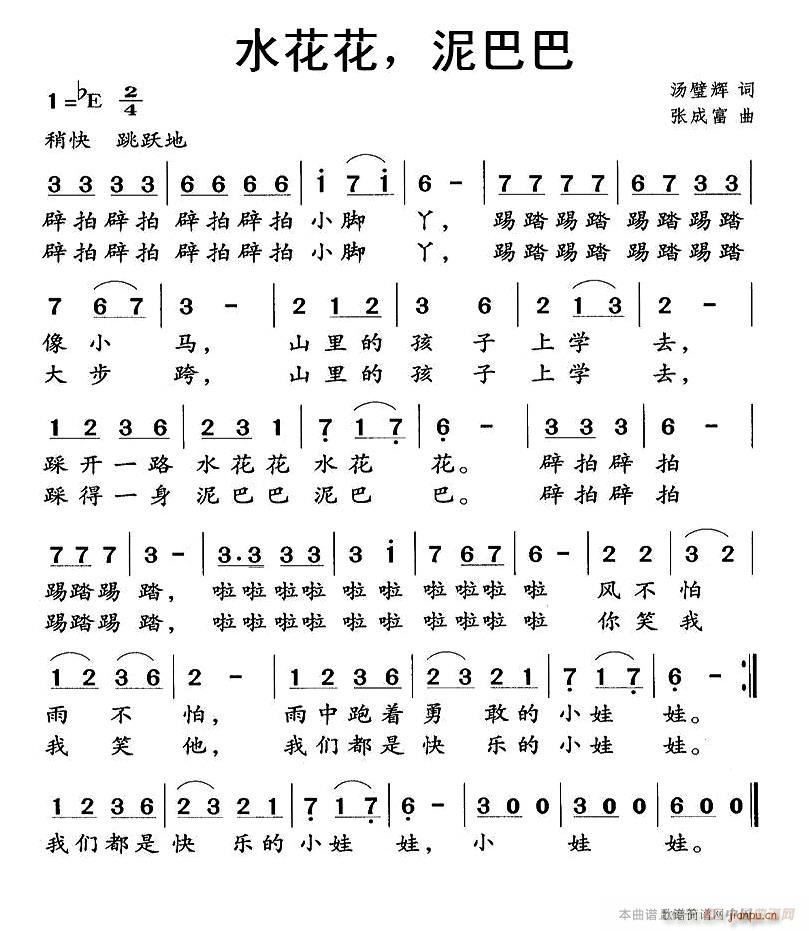 水花花，泥巴巴
1=♭E 2/4
汤璧辉 词
张成富 曲
稍快 跳跃地
3 3 3 3 | 6 6 6 6 | i 7 i | 6 - | 7 7 7 7 | 6 7 3 3 |
辟拍辟拍 辟拍辟拍 小脚 丫， 踢踏踢踏 踢踏踢踏
辟拍辟拍 辟拍辟拍 小脚 丫， 踢踏踢踏 踢踏踢踏
7 6 7 | 3 - | 2 1 2 | 3 6 | 2 1 3 | 2 - |
像 小 马， 山 里 的 孩 子 上 学 去，
大 步 跨， 山 里 的 孩 子 上 学 去，
1 2 3 6 | 2 3 1 | 7 1 7 | 6 - | 3 3 3 | 3 6 |
踩 开 一 路 水 花 花 水 花 花。 辟 拍 辟 拍
踩 得 一 身 泥 巴 巴 泥 巴 巴。 辟 拍 辟 拍
7 7 7 | 3 - | 3·3 3 3 | 3 i | 7 6 7 | 6 - | 2 2 | 3 2 |
踢踏踢 踏， 啦啦啦啦 啦 啦 啦啦啦 啦 风 不 怕
踢踏踢 踏， 啦啦啦啦 啦 啦 啦啦啦 啦 你 笑 我
1 2 3 6 | 2 - | 1 2 3 6 | 2 3 2 1 | 7 1 7 | 6 - :‖
雨 不 怕， 雨 中 跑 着 勇 敢 的 小 娃 娃。
我 笑 他， 我 们 都 是 快 乐 的 小 娃 娃。
1 2 3 6 | 2 3 2 1 | 7 1 7 | 6 - | 3 0 0 | 3 0 0 | 6 0 0 ‖
我 们 都 是 快 乐 的 小 娃 娃， 小 娃 娃。
本曲谱
歌谱简谱网
jianpu.cn